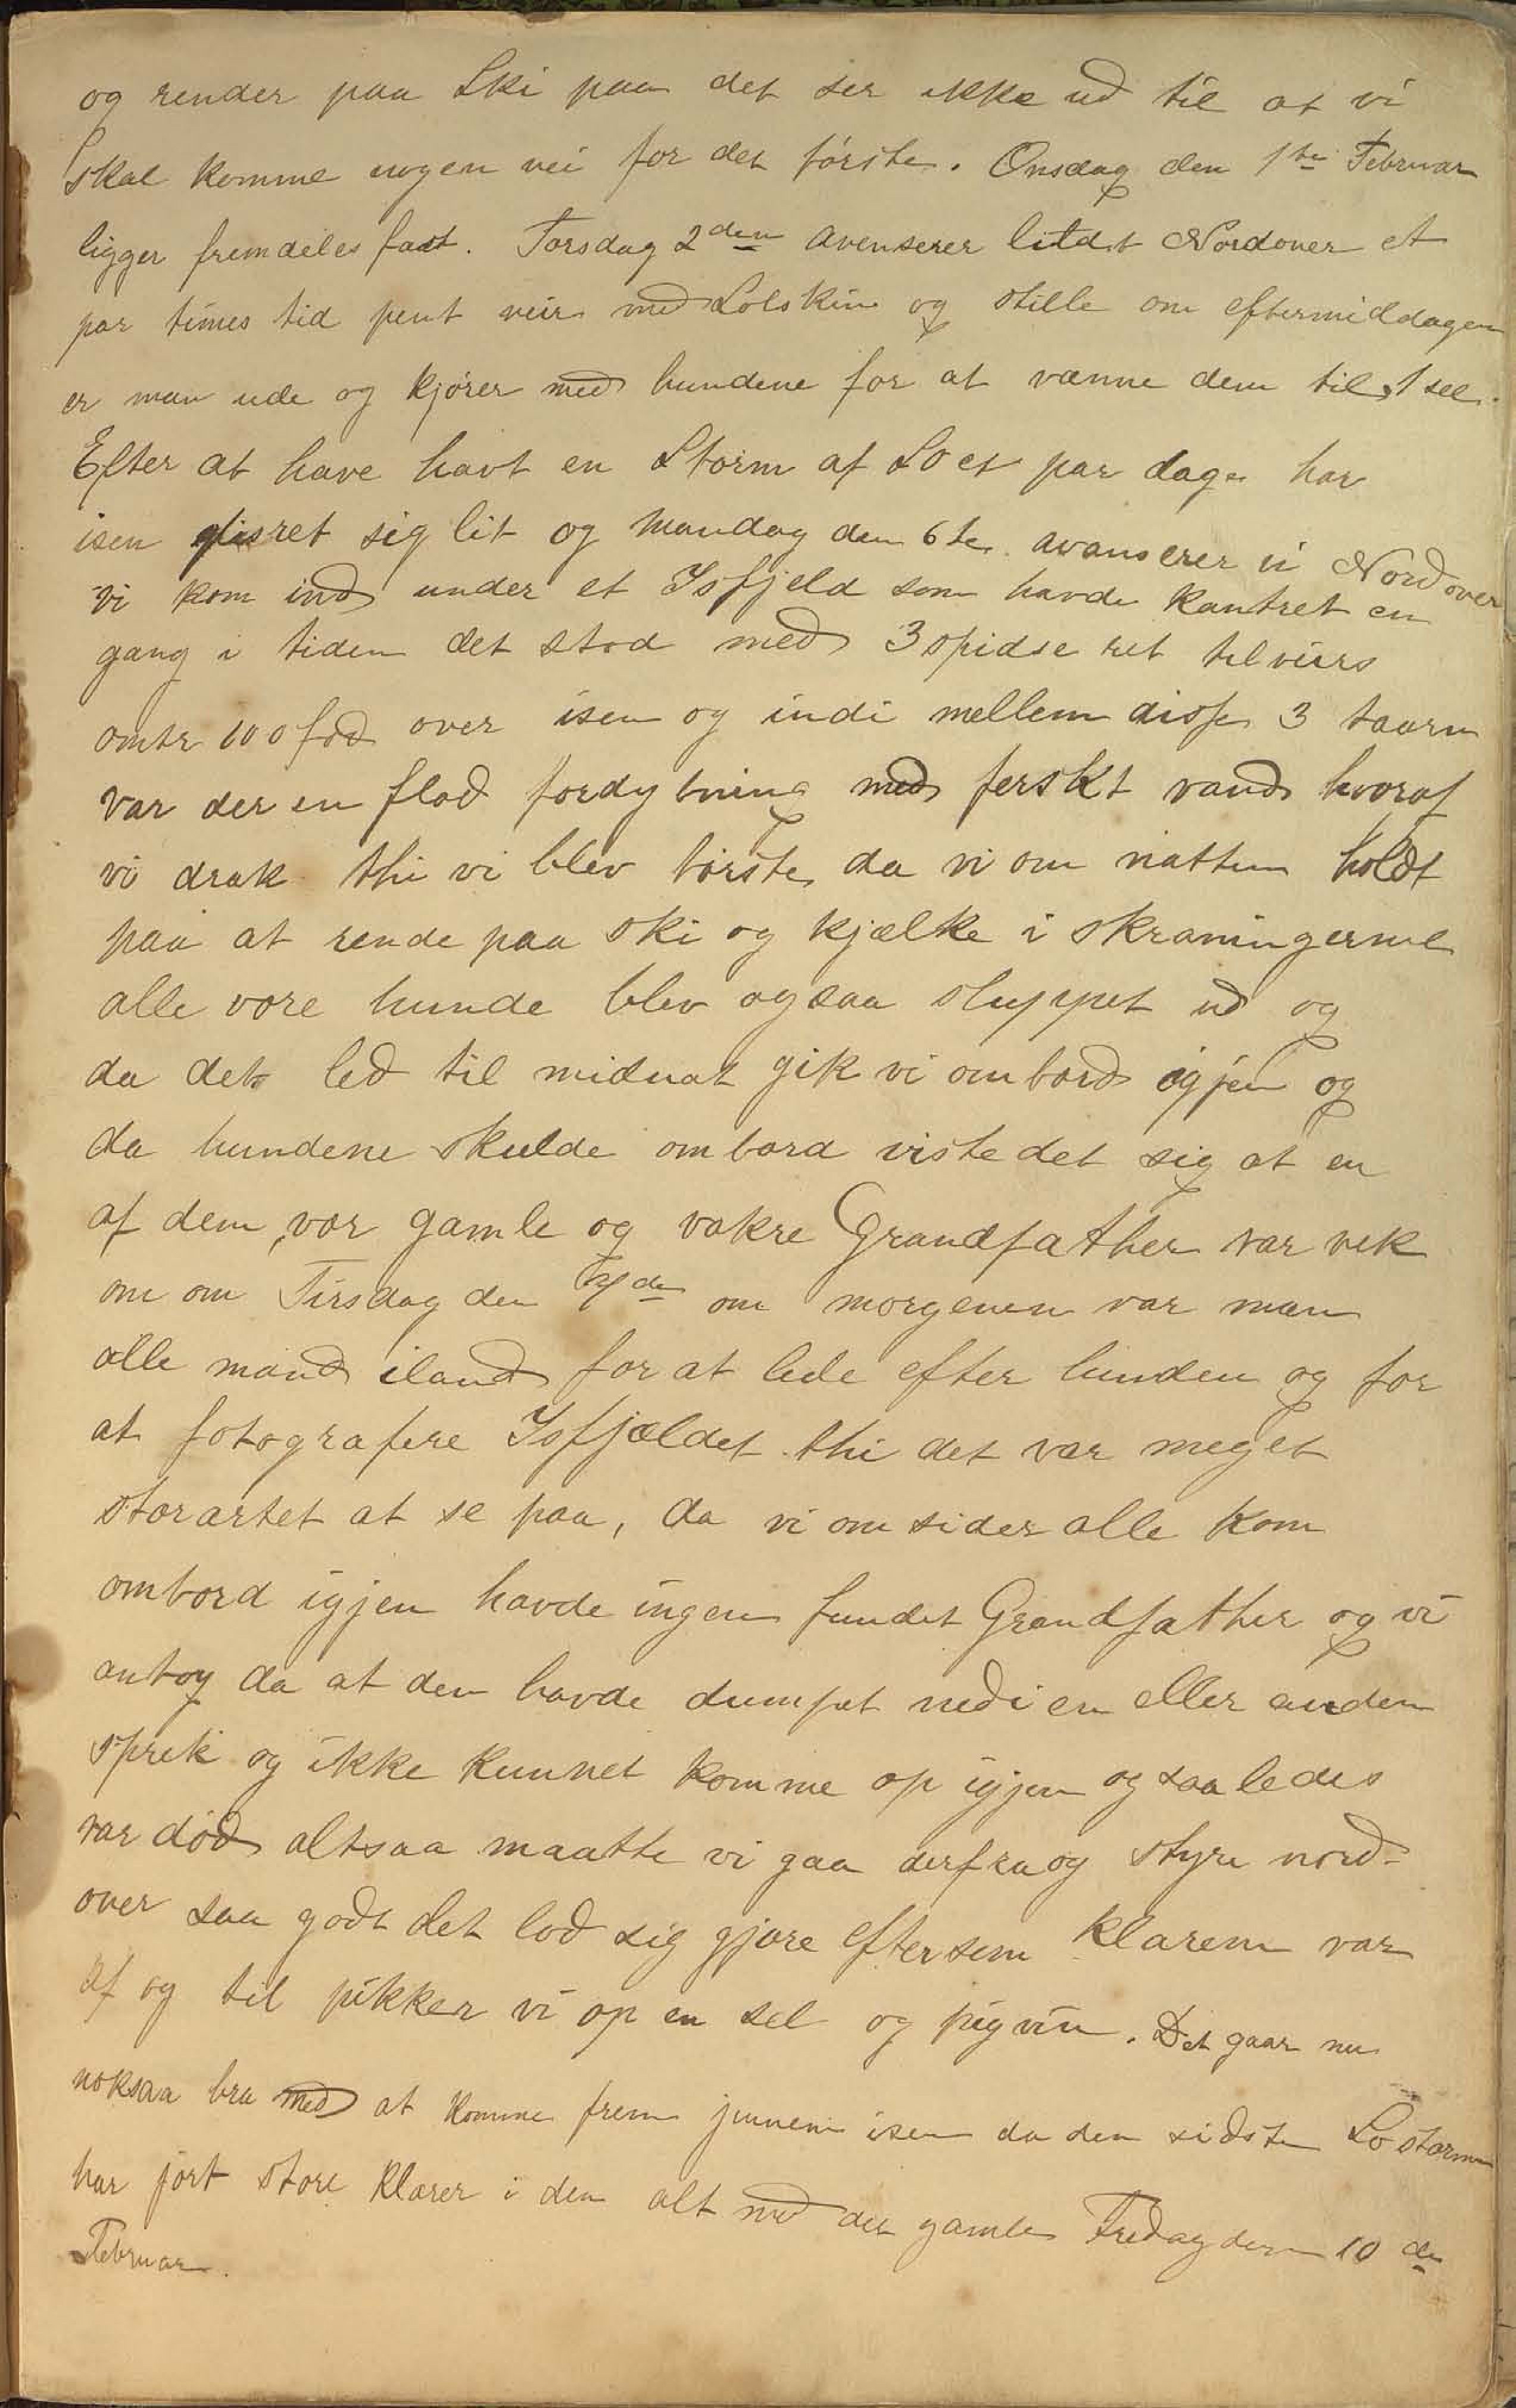 og render paa Ski paa det ser ikke ud til at vi
skal komme nogen vei for det første. Onsdag den 1ste Februar
ligger fremdeles fast. Torsdag 2den avenserer litdt Nordover et
par times tid pent veir med Solskin og stille om eftermiddagen
er man ude og kjører med hundene for at vænne dem til sel.
Efter at have havt en Storm af SO et par dage har
isen glisret sig lit og Mandag den 6te avanserer vi Nordover
vi kom ind under et Isfjeld som havde kantret en
gang i tiden det stod med 3 spidse ret tilveirs
omtr 100 fod over isen og indi mellem disse 3 taarn
var der en flad fordybning med ferskt vand hvoraf
vi drak thi vi blev tørste da vi om natten holdt
paa at rende paa ski og kjælke i skraningerne
alle vore hunde blev ogsaa sluppet ud og
da det led til midnat gik vi ombord igjen og
da hundene skulde ombord viste det sig at en
af dem, vor gamle og vakre Grandfather var vek
om om Tirsdag den 7de om morgenen var man
alle mand iland for at lede efter hunden og for
at fotografere Isfjældet thi det var meget
storartet at se paa, da vi omsider alle kom
ombord igjen havde ingen fundet Grandfather og vi
antog da at den havde dumpet nedi en eller anden
sprek og ikke kunnet komme op igjen og saaledes
var død altsaa maatte vi gaa derfra og styre nord-
over saa godt det lod sig gjøre eftersom klaren var
af og til pikker vi op en sel og pigvin. Det gaar nu
noksaa bra med at komme frem jennem isen da den sidste So stormen
har jort store klarer i den alt med det gamle Fredag den 10de
Februar.